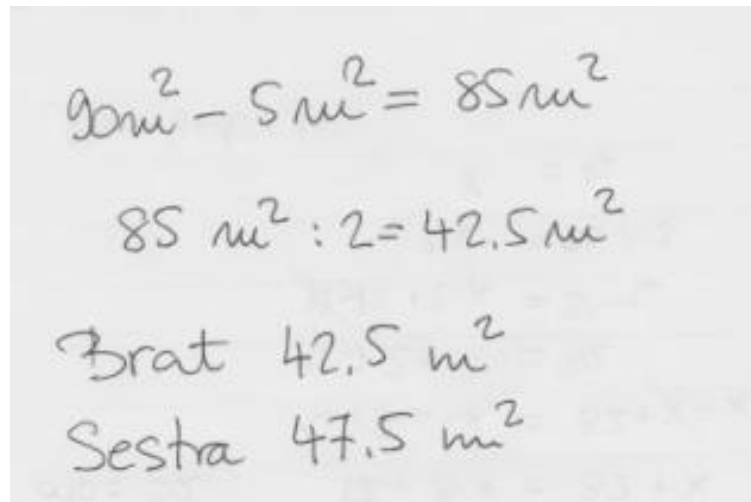 90m² - 5m² = 85m²
85 m² : 2 = 42.5 m²
Brat 42.5 m²
Sestra 47.5 m²